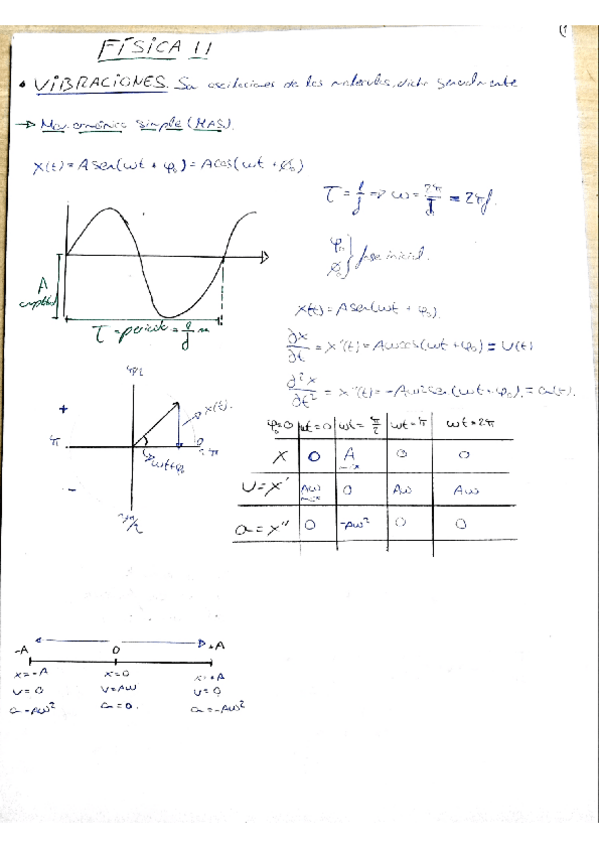 FÍSICA II
• VIBRACIONES. Son oscilaciones de las moléculas, dicho generalmente
→ Mov. armónico simple (MAS).
x(t) = A sen(ωt + φ₀) = A cos(ωt + ϕ₀)
T = 1/f => ω = 2π/T = 2πf.
φ₀
ϕ₀ } fase inicial.
A
amplitud
T = periodo = 1/f
x(t) = A sen(ωt + φ₀)
∂x/∂t = x'(t) = Aω cos(ωt + φ₀) = v(t)
∂²x/∂t² = x''(t) = -Aω² sen(ωt + φ₀) = a(t).
π/2
+
x(t).
π
0
2π
ωt+φ₀
-
3π/2
φ₀=0 ωt=0 ωt=π/2 ωt=π ωt=2π
x 0 A 0 0
v=x' Aω 0 Aω Aω
a=x'' 0 -Aω² 0 0
-A 0 +A
x=-A x=0 x=+A
v=0 v=Aω v=0
a=-Aω² a=0. a=-Aω²